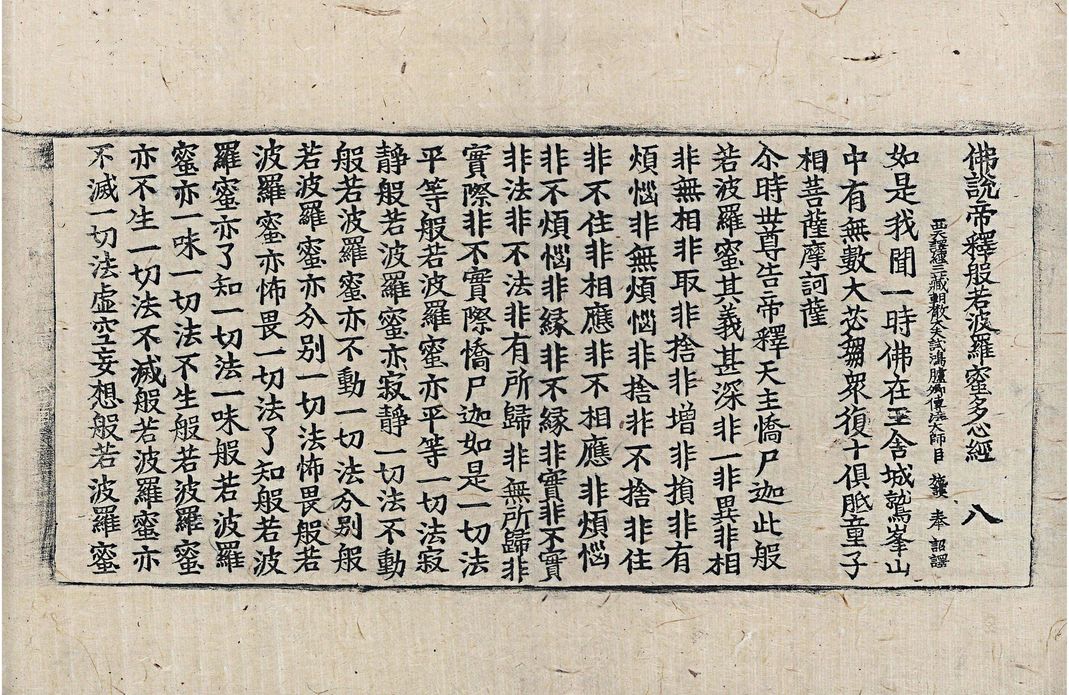 佛說帝釋般若波羅蜜多心經 八
西天譯經三藏朝散大夫試鴻臚卿傳法大師臣 施護 奉 詔譯
如是我聞一時佛在王舍城鷲峯山
中有無數大苾芻眾復十俱胝童子
相菩薩摩訶薩
尒時世尊告帝釋天主憍尸迦此般
若波羅蜜其義甚深非一非異非相
非無相非取非捨非增非損非有
煩惱非無煩惱非捨非不捨非住
非不住非相應非不相應非煩惱
非不煩惱非緣非不緣非實非不實
非法非不法非有所歸非無所歸非
實際非不實際憍尸迦如是一切法
平等般若波羅蜜亦平等一切法寂
靜般若波羅蜜亦寂靜一切法不動
般若波羅蜜亦不動一切法分別般
若波羅蜜亦分別一切法怖畏般若
波羅蜜亦怖畏一切法了知般若波
羅蜜亦了知一切法一味般若波羅
蜜亦一味一切法不生般若波羅蜜
亦不生一切法不滅般若波羅蜜亦
不滅一切法虛空妄想般若波羅蜜